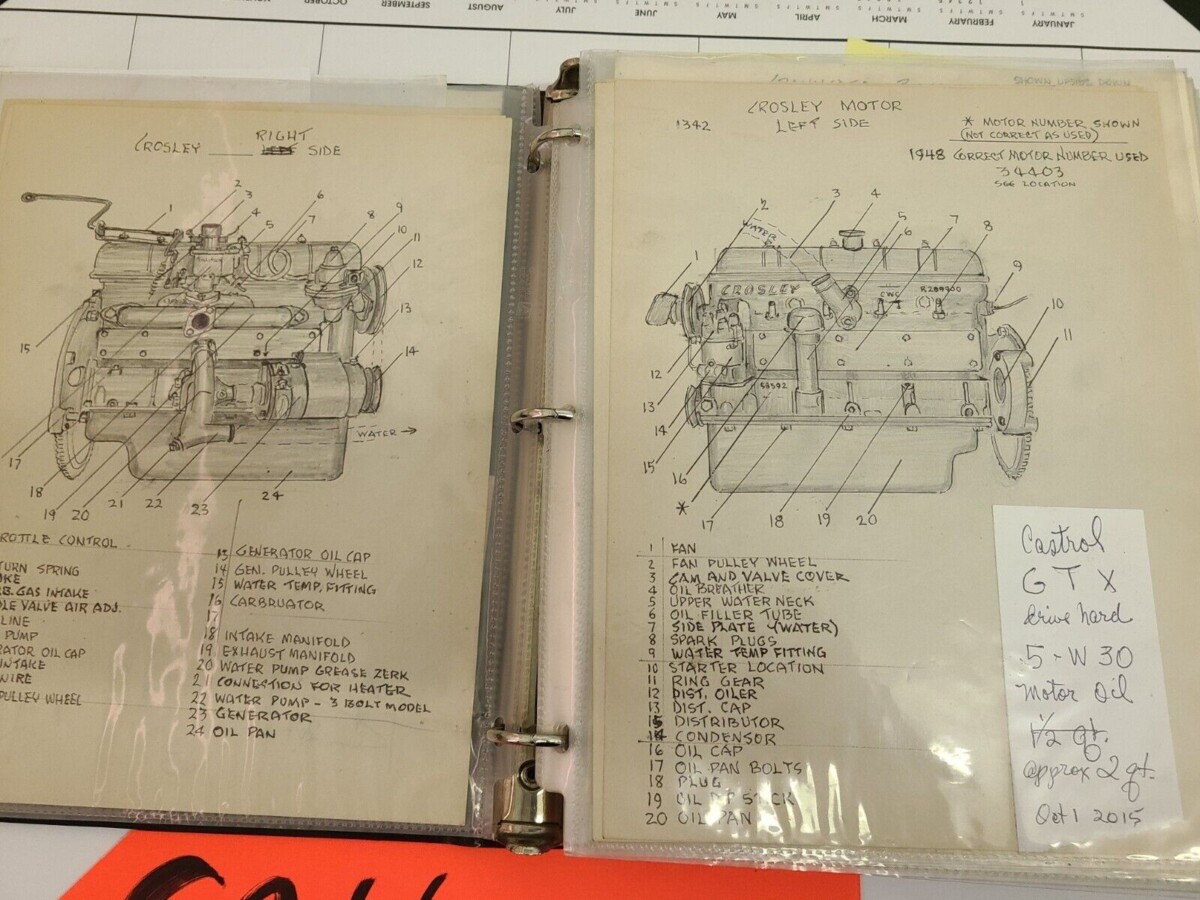 JANUARY
FEBRUARY
MARCH
APRIL
MAY
JUNE
JULY
AUGUST
SEPTEMBER
OCTOBER
CROSLEY ____ RIGHT
LEFT SIDE
1
2
3
4
5
6
7
8
9
10
11
12
13
14
15
17
18
19
20
21
22
23
24
WATER
ROTTLE CONTROL
TURN SPRING
OKE
RB. GAS INTAKE
DLE VALVE AIR ADJ.
LINE
PUMP
RATOR OIL CAP
INTAKE
WIRE
PULLEY WHEEL
13 GENERATOR OIL CAP
14 GEN. PULLEY WHEEL
15 WATER TEMP. FITTING
16 CARBRUATOR
17
18 INTAKE MANIFOLD
19 EXHAUST MANIFOLD
20 WATER PUMP GREASE ZERK
21 CONNECTION FOR HEATER
22 WATER PUMP - 3 BOLT MODEL
23 GENERATOR
24 OIL PAN
SHOWN UPSIDE DOWN
CROSLEY MOTOR
1342 LEFT SIDE
* MOTOR NUMBER SHOWN
(NOT CORRECT AS USED)
1948 CORRECT MOTOR NUMBER USED
34403
SEE LOCATION
1
2
3
4
5
6
7
8
9
10
11
12
13
14
15
16
*
17
18
19
20
WATER
CROSLEY
CWC
53592
1 FAN
2 FAN PULLEY WHEEL
3 CAM AND VALVE COVER
4 OIL BREATHER
5 UPPER WATER NECK
6 OIL FILLER TUBE
7 SIDE PLATE (WATER)
8 SPARK PLUGS
9 WATER TEMP FITTING
10 STARTER LOCATION
11 RING GEAR
12 DIST. OILER
13 DIST. CAP
15 DISTRIBUTOR
14 CONDENSOR
16 OIL CAP
17 OIL PAN BOLTS
18 PLUG
19 OIL DIP STICK
20 OIL PAN
Castrol
G T X
drive hard
5-W 30
Motor Oil
1/2 qt.
approx 2 qt.
Oct 1 2015